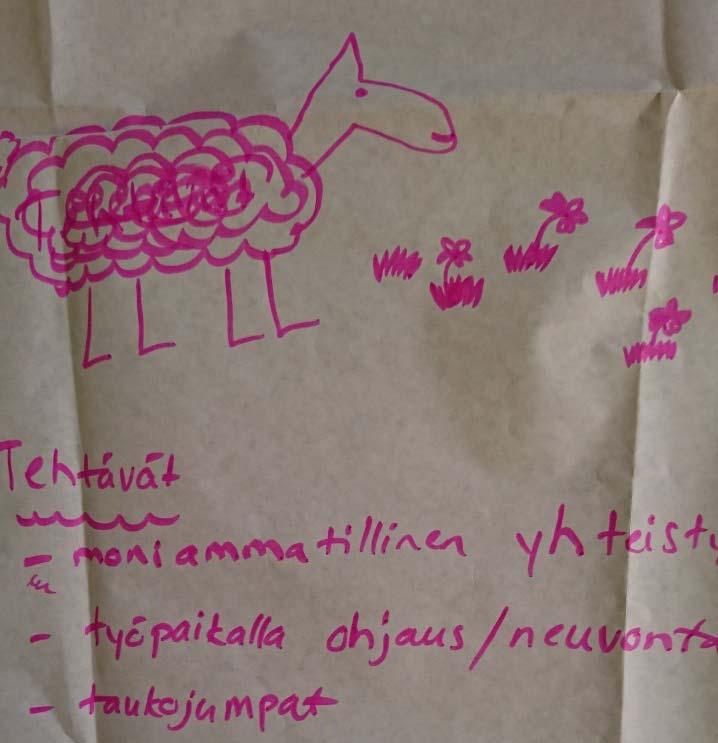 Tehtävät
- moniammatillinen yhteisty
- työpaikalla ohjaus/neuvonta
- taukojumpat